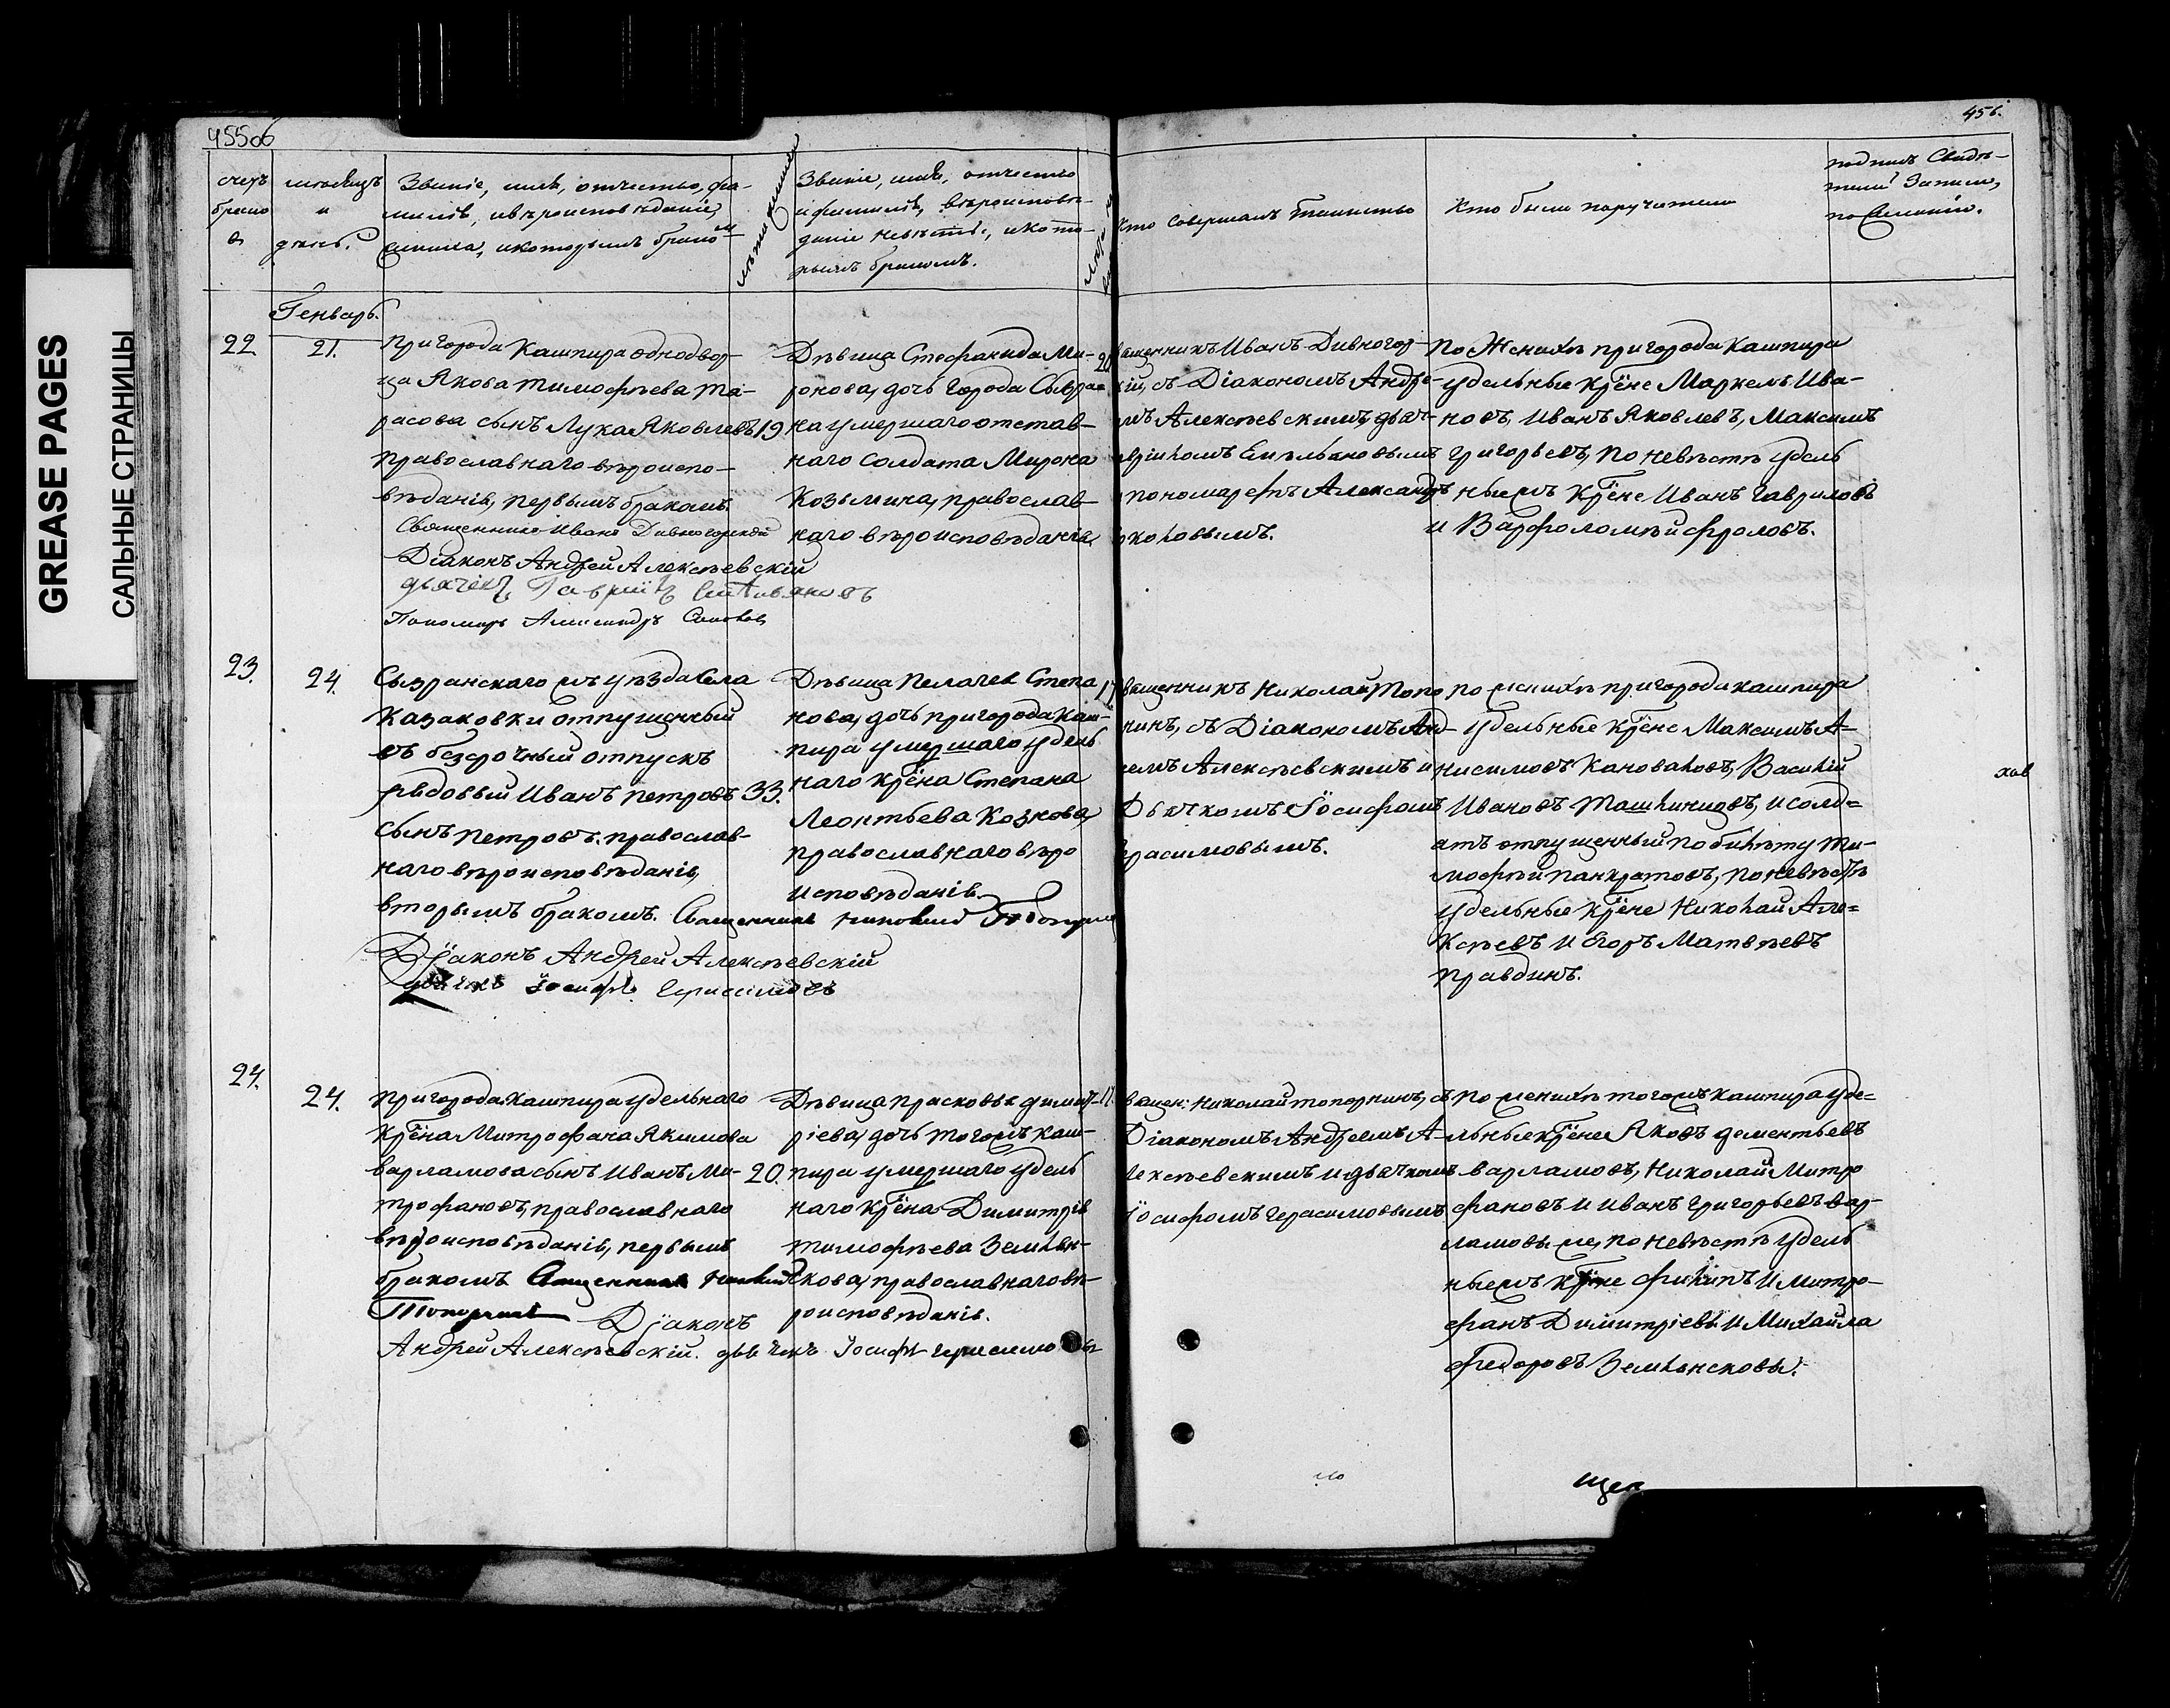 GREASE PAGES
САЛЬНЫЕ СТРАНИЦЫ
455об
456.
счетъ
брако
в
месяцъ
и
день.
Званіе, имя, отчество, фа-
милія, и вѣроисповѣданіе
жениха, и которымъ браком
лѣта жениха
Званіе, имя, отчество
и фамилія, вѣроисповѣ-
даніе невѣсты, и кото-
рымъ бракомъ.
кто совершалъ таинство
Кто были поручители
подпись Свидѣ-
телей Записи,
по желанію.
Генварь.
22
21.
пригорода Кашпира однодвор-
ца Якова тимофѣева Та-
расова сынъ Лука Яковлевъ
православнаго вѣроиспо-
вѣданія, первымъ бракомъ.
Священникъ Иванъ Дивногорскій
Діаконъ Андрей Алексѣевскій
дьячекъ Гавріилъ Емельяновъ
Пономарь Александръ Соколов
19
Дѣвица Стефанида Ми-
ронова, дочь города Сызра-
на умершаго отстав-
наго солдата Мирона
Козьмина, православ-
наго вѣроисповѣданія.
20
вященникъ Иванъ Дивногор-
кій, съ Діакономъ Андре-
мъ Алексѣевскимъ, дьяч-
вріиломъ Емельяновымъ
пономаремъ Александръ
околовымъ.
по Женихѣ пригорода Кашпира
удельные крѣне Маркелъ Ива-
новъ, Иванъ Яковлевъ, Максимъ
Григорьевъ, по невѣстѣ удель
ныежъ крѣне Иванъ Гавриловъ
и Варфоломѣй фроловъ.
23.
24.
Сызранскаго жъ уѣзда села
Казаковки отпущенный
въ безсрочный отпускъ
рядовый Иванъ Петровъ
сынъ Петровъ. православ-
наго вѣроисповѣданія,
вторымъ бракомъ. Священникъ Николай Топорнин
Діаконъ Андрей Алексѣевскій
дьячекъ Іосифъ Герасимовъ
33.
Дѣвица Пелагея Степа
нова, дочь пригорода Каш-
пира умершаго удель
наго крѣна Степана
Леонтьева Козкова,
православнаго вѣро
исповѣданія
17
вященникъ Николай Топо
нинъ, съ Діакономъ Анд-
емъ Алексѣевскимъ и
Дьячкомъ Іосифомъ
ерасимовымъ.
по женихѣ пригорода кашпира
удельные крѣне Максимъ А-
нисимовъ Коноваловъ, Василій
Ивановъ Ташлинцовъ, и солд=
атъ отпущенный по билѣту Ти-
мофѣй Панкратовъ, по невѣстѣ
удельные крѣне Николай Але=
ксѣевъ и Егоръ Матвѣевъ
Правдинъ.
24.
24.
пригорода кашпира удельнаго
крѣна Митрофана Якимова
варламова сынъ Иванъ Ми-
трофановъ, православнаго
вѣроисповѣданія, первымъ
бракомъ Священникъ Николай
Топорнин Діаконъ
Андрей Алексѣевскій. дьячекъ Іосифъ герасимовъ
20.
Дѣвица Прасковья димит-
ріева, дочь тогожъ каш-
пира умершаго удель
наго крѣна Димитрія
тимофѣева Землян-
скова, православнаго вѣ-
роисповѣданія.
17.
вящен: Николай топорнинъ, съ
Діакономъ Андреемъ А-
лексѣевскимъ и дьячкомъ
Іосифомъ герасимовымъ
по женихѣ тогожъ кашпира уде=
льные крѣне Яковъ дементьевъ
варламовъ, Николай Митро
фановъ и Иванъ Григорьевъ вар-
ламовы же, по невѣстѣ удель
ныежъ крѣне филипъ и Митро-
фанъ Димитріевы и Михайла
Федоровъ Землянсковы.
хов
ще